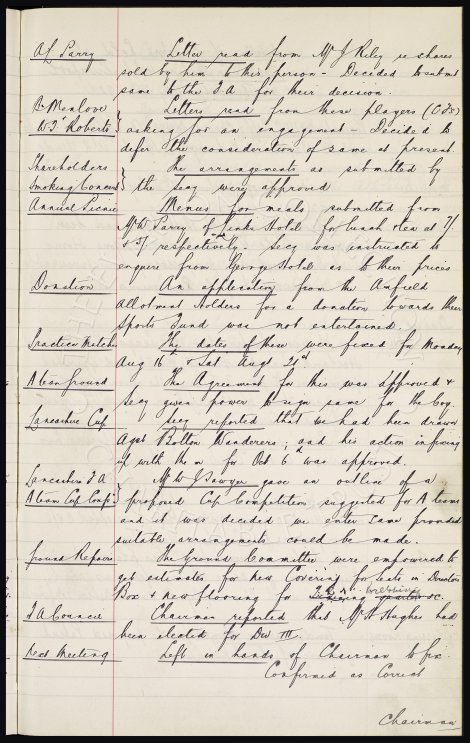 A L Parry Letter read from Mr J Riley re shares
sold by him to this person – Decided to submit
same to the F A for their decision.
Menlove Letters read from these players (O Fs)
W T Roberts } asking for an engagement – Decided to
defer the consideration of same at present
Shareholders The arrangements as submitted by
Smoking Concert } the Secy were approved
Annual Picnic Menus for meals submitted from
Mr W Parry of Hotel for lunch & tea at
& respectively. Secy was instructed to
enquire from George Hotel as to their prices
Donation An application from the Anfield
Allotment Holders for a donation towards their
Sports Fund was not entertained.
Practice Matches The dates of these were fixed for Monday
Aug 16 & Sat Augt
A team ground The Agreement for this was approved &
Secy given power to sign same for the Coy.
Lancashire Cup Secy reported that we had been drawn
agst Bolton Wanderers; and his action in fixing
up with them for Oct 6 was approved.
Lancashire F A Mr W J Sawyer gave an outline of a
A team Cup Comp } proposed Cup Competition suggested for A teams
and it was decided we enter same provided
suitable arrangements could be made.
Ground Repairs The Ground Committee were empowered to
get estimates for new Covering for seats in Directors
Box & new flooring for &c.
F A Council Chairman reported that Mr H Hughes had
been elected for Div III.
Next Meeting Left in hands of Chairman to fix.
Confirmed as Correct
Chairman